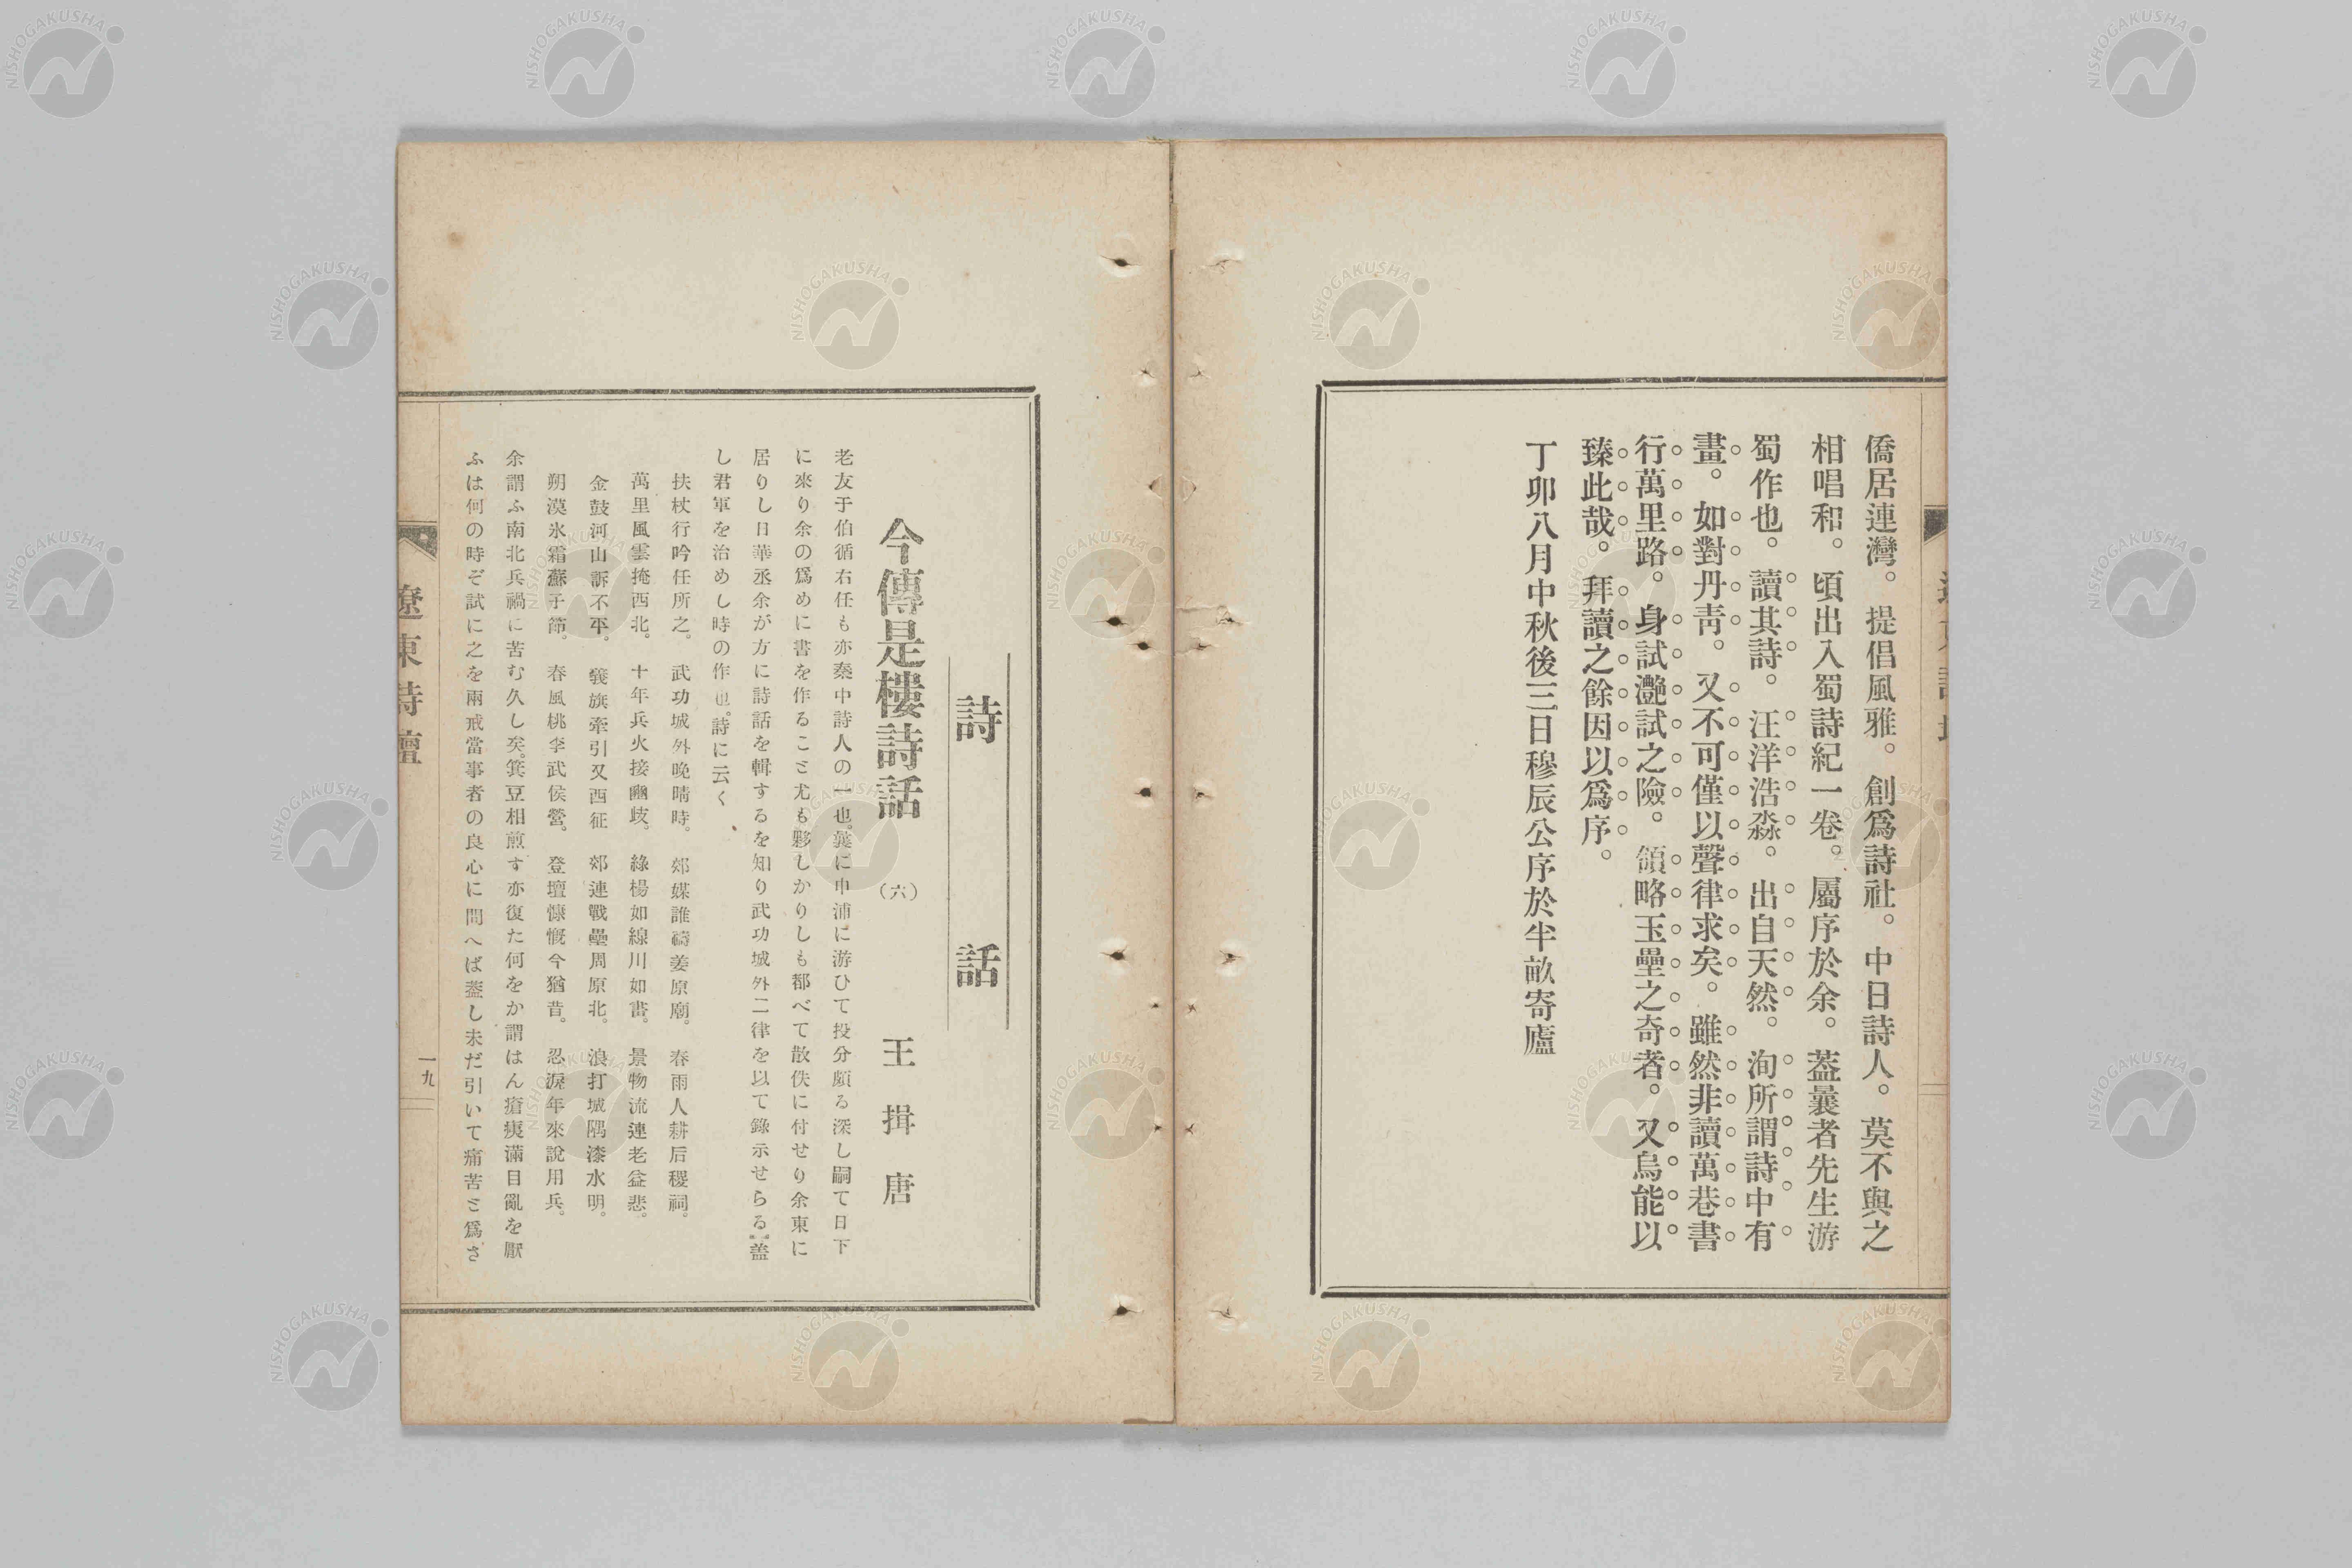 僑居連灣。提倡風雅。創爲詩社。中日詩人。莫不與之
相唱和。頃出入蜀詩紀一卷。屬序於余。蓋曩者先生游
蜀作也。讀其詩。汪洋浩淼。出自天然。洵所謂詩中有
畫。如對丹靑。又不可僅以聲律求矣。雖然非讀萬巷書
行萬里路。身試灔試之險。領略玉壘之奇者。又烏能以
臻此哉。拜讀之餘因以爲序。
丁卯八月中秋後三日穆辰公序於半畝寄廬
詩話
今傳是樓詩話 (六) 王揖唐
老友于伯循右任も亦秦中詩人の一也。曩に申浦に游ひて投分頗る深し嗣て日下
に來り余の爲めに書を作ることも尤も夥しかりしも都べて散佚に付せり余東に
居りし日華丞余が方に詩話を輯するを知り武功城外二律を以て錄示せらる蓋
し君軍を治めし時の作也。詩に云く
扶杖行吟任所之。武功城外晚晴時。郊媒誰禱姜原廟。春雨人耕后稷祠。
萬里風雲掩西北。十年兵火接豳歧。綠楊如線川如畫。景物流連老益悲。
金鼓河山訴不平。義旗牽引又西征 郊連戰壘周原北。浪打城隅漆水明。
朔漠氷霜蘇子節。春風桃李武侯營。登壇慷慨今猶昔。忍淚年來說用兵。
余謂ふ南北兵禍に苦む久し矣。箕豆相煎す亦復た何をか謂はん瘡痍滿目亂を厭
ふは何の時ぞ試に之を兩戒當事者の良心に問へば蓋し未だ引いて痛苦と爲さ
遼東詩壇
一九
NISHOGAKUSHA